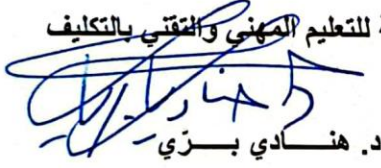 للتعليم المهني والتقني بالتكليف
د. هنــــادي بــــرّي